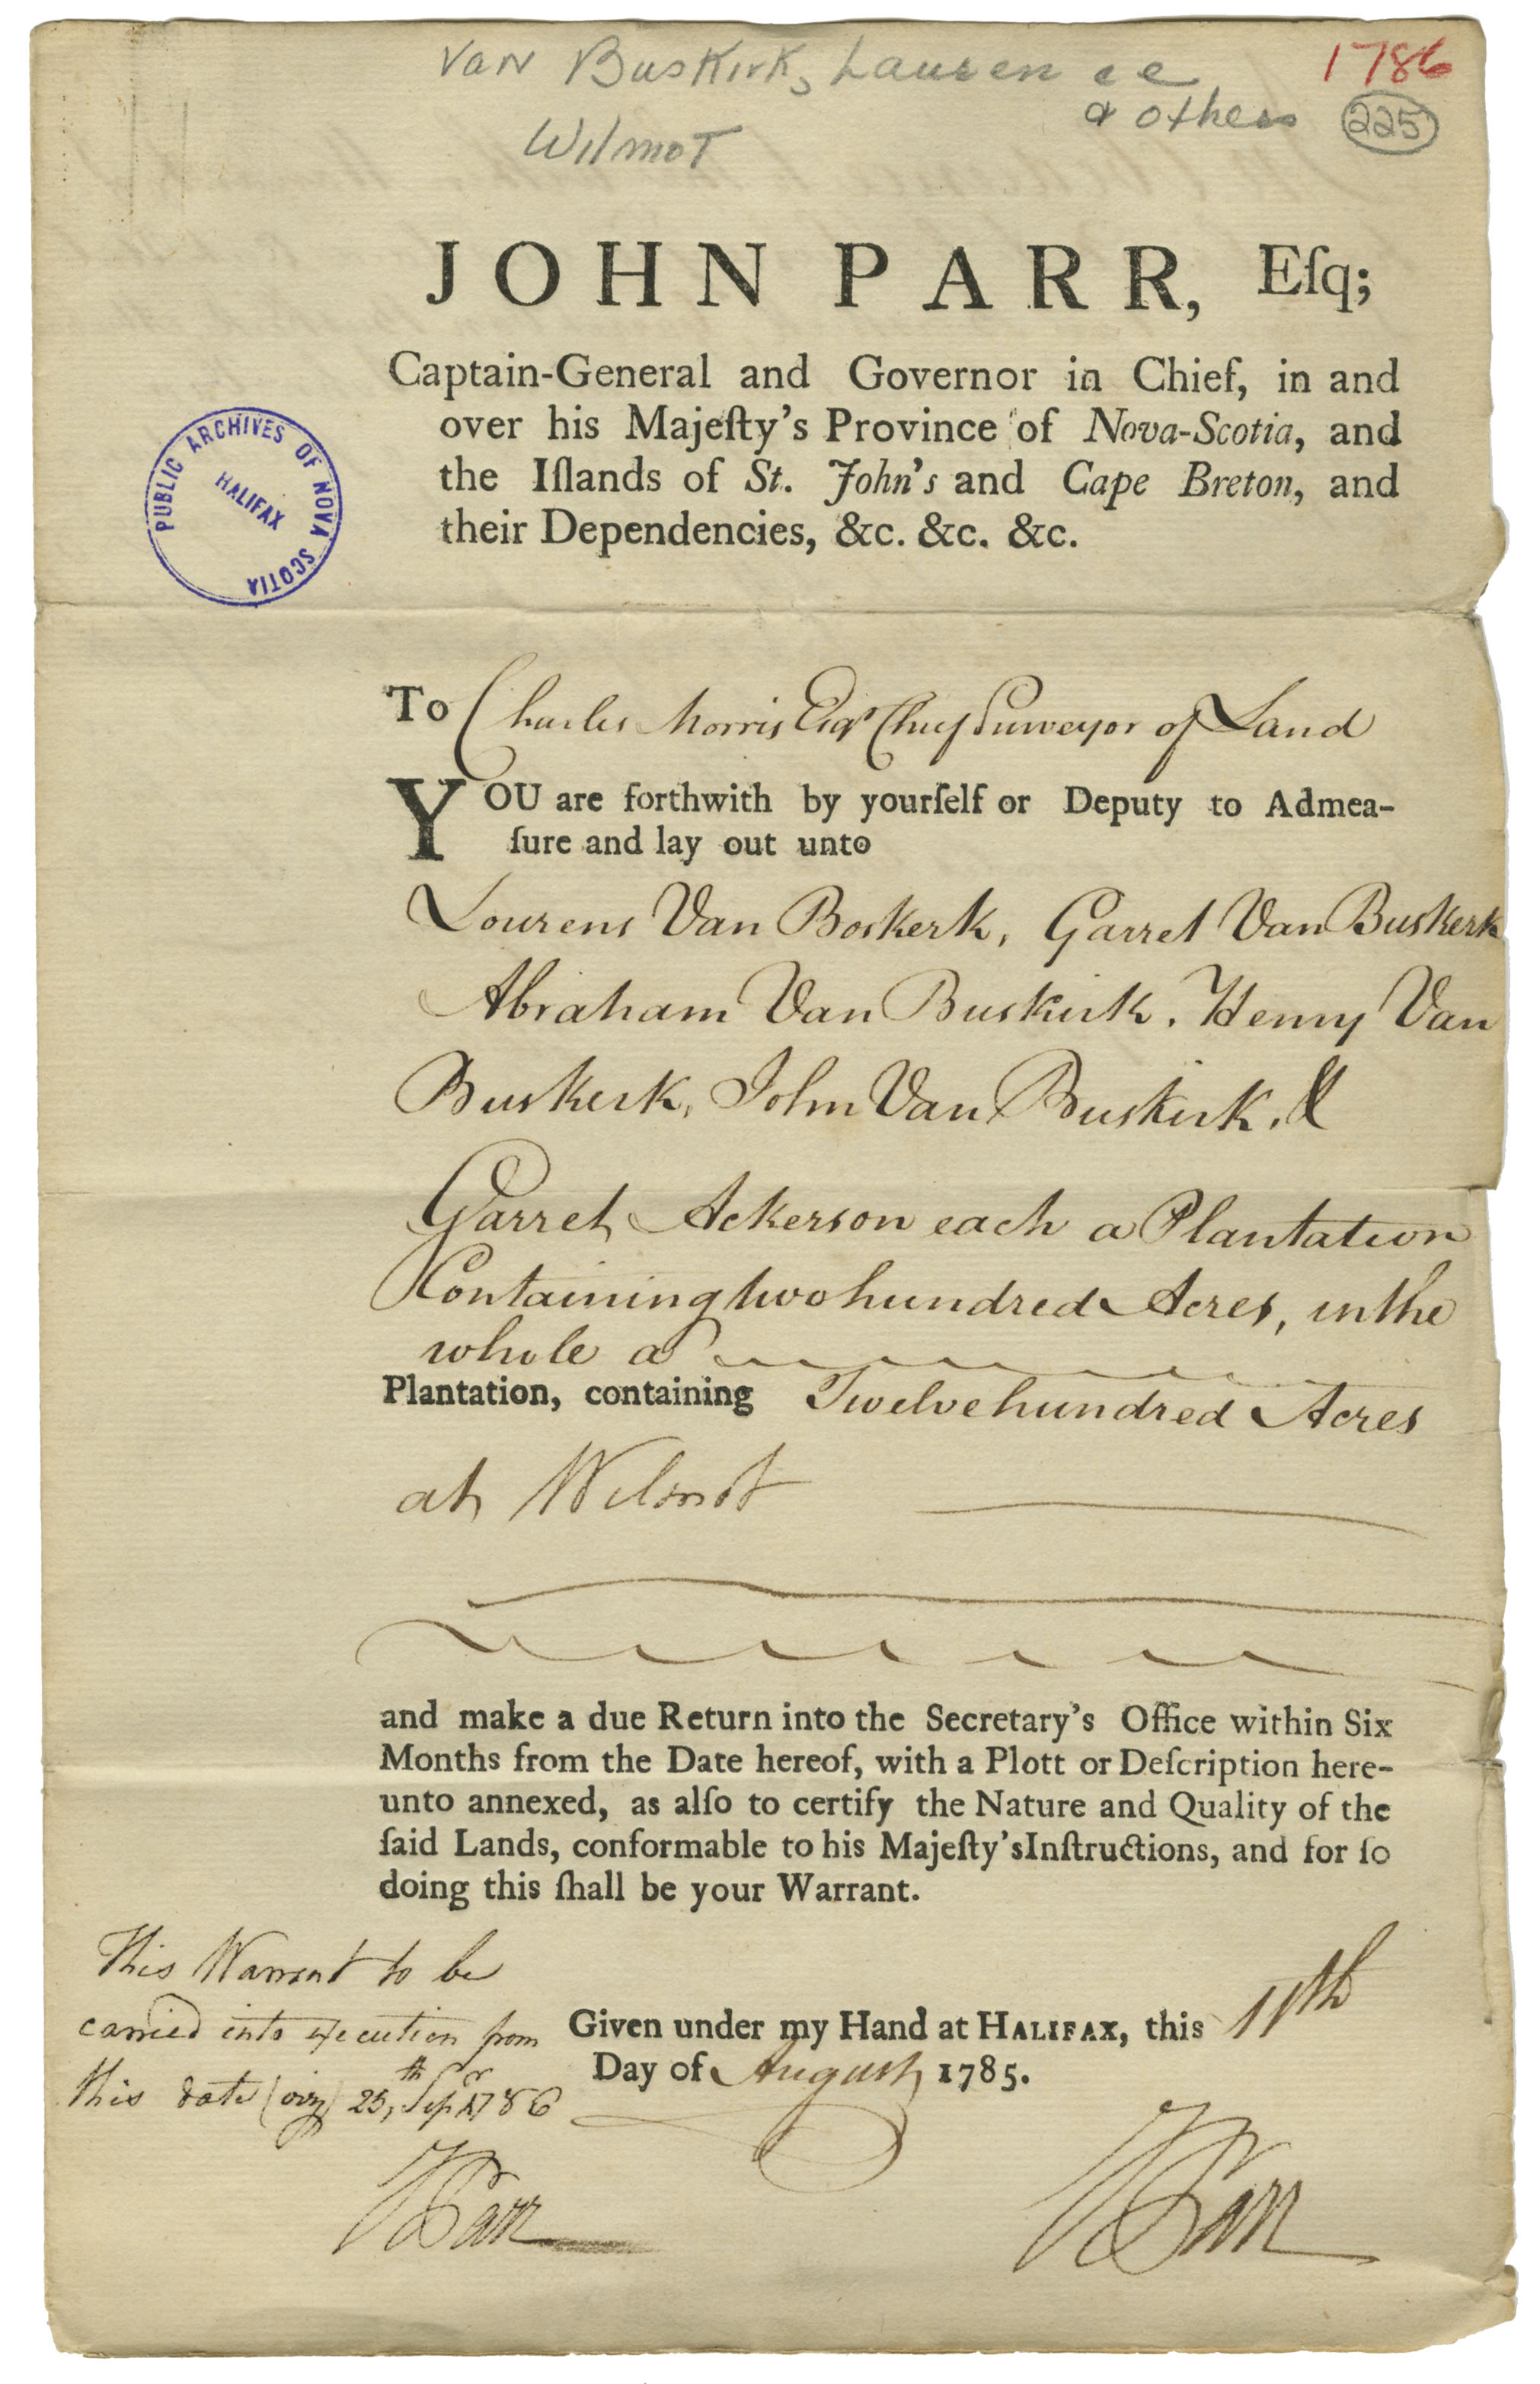 Van Buskirk, Laurence
& others
1786
225
Wilmot
JOHN PARR, Eſq;
Captain-General and Governor in Chief, in and
over his Majeſty's Province of Nova-Scotia, and
the Iſlands of St. John's and Cape Breton, and
their Dependencies, &c. &c. &c.
PUBLIC ARCHIVES OF NOVA SCOTIA
HALIFAX
To Charles Morris Esqr Chief Surveyor of Land
YOU are forthwith by yourſelf or Deputy to Admea-
ſure and lay out unto
Lourens Van Boskerk, Garret Van Buskerk
Abraham Van Buskirk, Henry Van
Buskerk, John Van Buskirk, &
Garret Ackerson each a Plantation
Containing two hundred Acres, in the
whole a
Plantation, containing Twelve hundred Acres
at Wilmot
and make a due Return into the Secretary's Office within Six
Months from the Date hereof, with a Plott or Deſcription here-
unto annexed, as alſo to certify the Nature and Quality of the
ſaid Lands, conformable to his Majeſty'sInſtructions, and for ſo
doing this ſhall be your Warrant.
This Warrant to be
carried into execution from
this date (viz) 25th Sepr 1786
JParr
Given under my Hand at HALIFAX, this 11th
Day of August 1785.
JParr